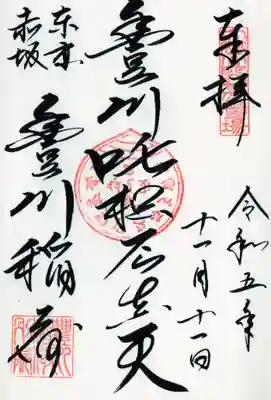 奉拝
令和五年
十一月十一日
豊川吒枳尼真天
東京
赤坂
豊川稲荷